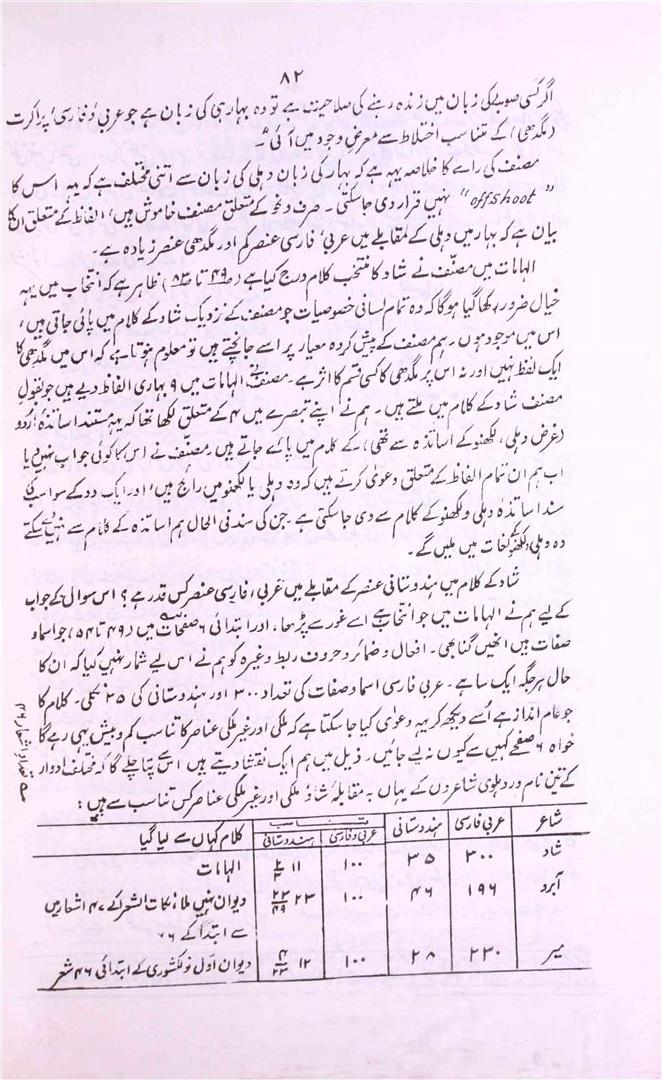 ۸۲
اگر کسی صوبے کی زبان میں زندہ رہنے کی صلاحیت ہے تو وہ بہار ہی کی زبان ہے جو عربی و فارسی، پراکرت
(مگدھی) کے تناسب اختلاط سے معرض وجود میں آئی"۔
مصنف کی رائے کا خلاصہ یہ ہے کہ بہار کی زبان دہلی کی زبان سے اتنی مختلف ہے کہ یہ اس کا
"offshoot" نہیں قرار دی جا سکتی۔ صرف و نحو کے متعلق مصنف خاموش ہیں، الفاظ کے متعلق ان کا
بیان ہے کہ بہار میں دہلی کے مقابلے میں عربی، فارسی عنصر کم اور مگدھی عنصر زیادہ ہے۔
الہامات میں مصنف نے شاد کا منتخب کلام درج کیا ہے (ص ۴۹ تا ص ۸۳) ظاہر ہے کہ انتخاب میں یہ
خیال ضرور رکھا گیا ہوگا کہ وہ تمام لسانی خصوصیات جو مصنف کے نزدیک شاد کے کلام میں پائی جاتی ہیں،
اس میں موجود ہوں۔ ہم مصنف کے پیش کردہ معیار پر اسے جانچتے ہیں تو معلوم ہوتا ہے، کہ اس میں مگدھی کا
ایک لفظ نہیں اور نہ اس پر مگدھی کا کسی قسم کا اثر ہے۔ مصنف نے الہامات میں ۹ بہاری الفاظ دیے ہیں جو بقول
مصنف شاد کے کلام میں ملتے ہیں۔ ہم نے اپنے تبصرے میں ۴ کے متعلق لکھا تھا کہ یہ مستند اساتذہ اردو
(غرض دہلی، لکھنو کے اساتذہ سے تھی) کے کلام میں پائے جاتے ہیں۔ مصنف نے اس کا کوئی جواب نہیں دیا
اب ہم ان تمام الفاظ کے متعلق دعویٰ کرتے ہیں کہ وہ دہلی یا لکھنو میں رائج ہیں، اور ایک دو کے سوا سب کی
سند اساتذہ دہلی و لکھنو کے کلام سے دی جا سکتی ہے۔ جن کی سند فی الحال ہم اساتذہ کے کلام سے نہیں دے سکتے
وہ دہلی و لکھنو کے لغات میں ملیں گے۔
شاد کے کلام میں ہندوستانی عنصر کے مقابلے میں عربی، فارسی عنصر کس قدر ہے؟ اس سوال کے جواب
کے لیے ہم نے الہامات میں جو انتخاب ہے اسے غور سے پڑھا، اور ابتدائی ۶ صفحات میں (۴۹ تا ۵۴) جو اسما و
صفات ہیں انھیں گنا بھی۔ افعال و ضمائر و حروف ربط وغیرہ کو ہم نے اس لیے شمار نہیں کیا کہ ان کا
حال ہر جگہ ایک سا ہے۔ عربی فارسی اسما و صفات کی تعداد ۳۰۰ اور ہندوستانی کی ۳۵ نکلی۔ کلام کا
جو عام انداز ہے اُسے دیکھ کر یہ دعویٰ کیا جا سکتا ہے کہ ملکی اور غیر ملکی عناصر کا تناسب کم و بیش یہی رہے گا
خواہ ۶ صفحے کہیں سے کیوں نہ لیے جائیں۔ ذیل میں ہم ایک نقشا دیتے ہیں اس سے پتا چلے گا کہ مختلف ادوار
کے تین نامور دہلوی شاعروں کے یہاں بہ مقابلہ شاد ملکی اور غیر ملکی عناصر کس تناسب سے ہیں:
شاعر | عربی فارسی | ہندوستانی | تناسب | کلام کہاں سے لیا گیا
عربی و فارسی | ہندوستانی
شاد | ۳۰۰ | ۳۵ | ۱۰۰ | ۱۱ ۲/۳ | الہامات
آبرد | ۱۹۶ | ۴۶ | ۱۰۰ | ۲۳ ۲۳/۴۹ | دیوان نہیں ملا نکات الشعرا کے ۴۷ اشعار میں
سے ابتدا کے ۲۶
میر | ۲۳۰ | ۲۸ | ۱۰۰ | ۱۲ ۴/۲۳ | دیوان اول نولکشوری کے ابتدائی ۴۶ شعر